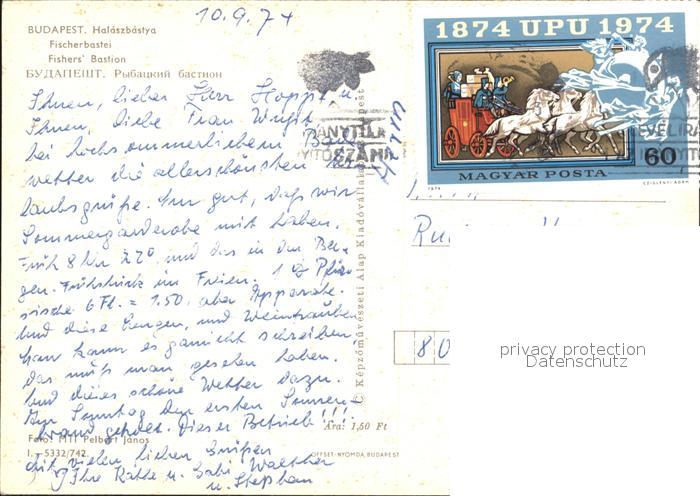 10.9.74
BUDAPEST. Halászbástya
Fischerbastei
Fishers' Bastion
БУДАПЕШТ. Рыбацкий бастион
Ihnen, lieber Herr Hoppt u.
Ihnen, liebe Frau Wright
bei hochsommerlichem
Wetter die allerschönsten
laubsgrüße. Nur gut, daß wir
Sommergarderobe mit haben.
Früh 8 Uhr 22° und das in den Ber-
gen. Frühstück im Freien. 1 Pfir-
sische 6 Ft. = 1.50, aber Apparate.
Und diese Mengen, und Weintrauben
kann es garnicht schreiben,
das muß man gesehen haben.
Und dieses schöne Wetter dazu.
Am Sonntag den ersten Sonnen-
brand geholt. Dieser Betrieb!!!
Foto: MTI Pelbárt János
I.-5332/742.
Mit vielen lieben Grüßen
Ihre Käthe u. Gabi, Walther
u. Stephan
Ára: 1,50 Ft
OFFSET-NYOMDA, BUDAPEST
© Képzőművészeti Alap Kiadóvállalata, Budapest
1874 UPU 1974
60
MAGYAR POSTA
1974
CZIGLÉNYI ÁDÁM
80
privacy protection
Datenschutz